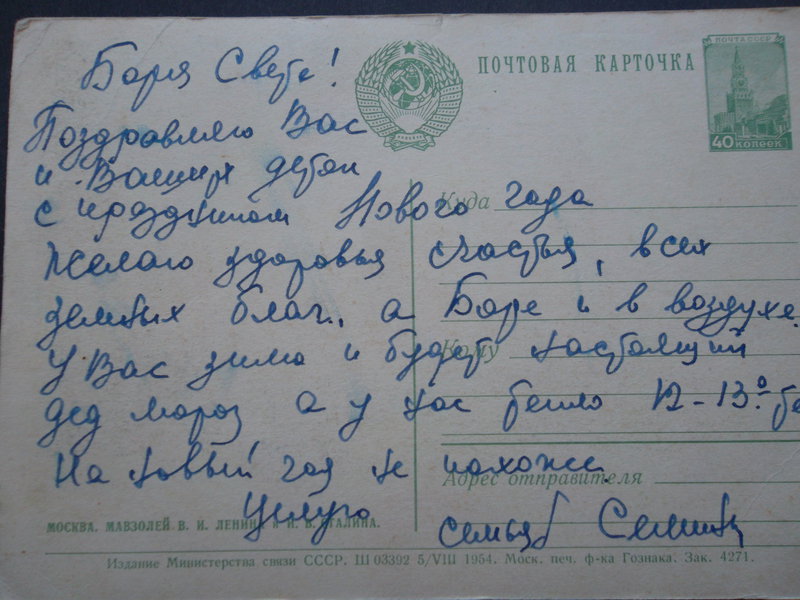 ПОЧТОВАЯ КАРТОЧКА
ПОЧТА СССР
40 КОПЕЕК
Боря Света!
Поздравляю Вас
и Ваших детей
с праздником Нового года
Желаю здоровья счастья, всех
земных благ., а Боре и в воздухе.
У Вас зима и будет настоящий
дед мороз а у нас тепло 12-13°
На новый год не похоже.
Целую
семья
Куда
Кому
Адрес отправителя
МОСКВА. МАВЗОЛЕЙ В. И. ЛЕНИНА И И. В. СТАЛИНА.
Издание Министерства связи СССР. Ш 03392 5/VIII 1954. Моск. печ. ф-ка Гознака. Зак. 4271.